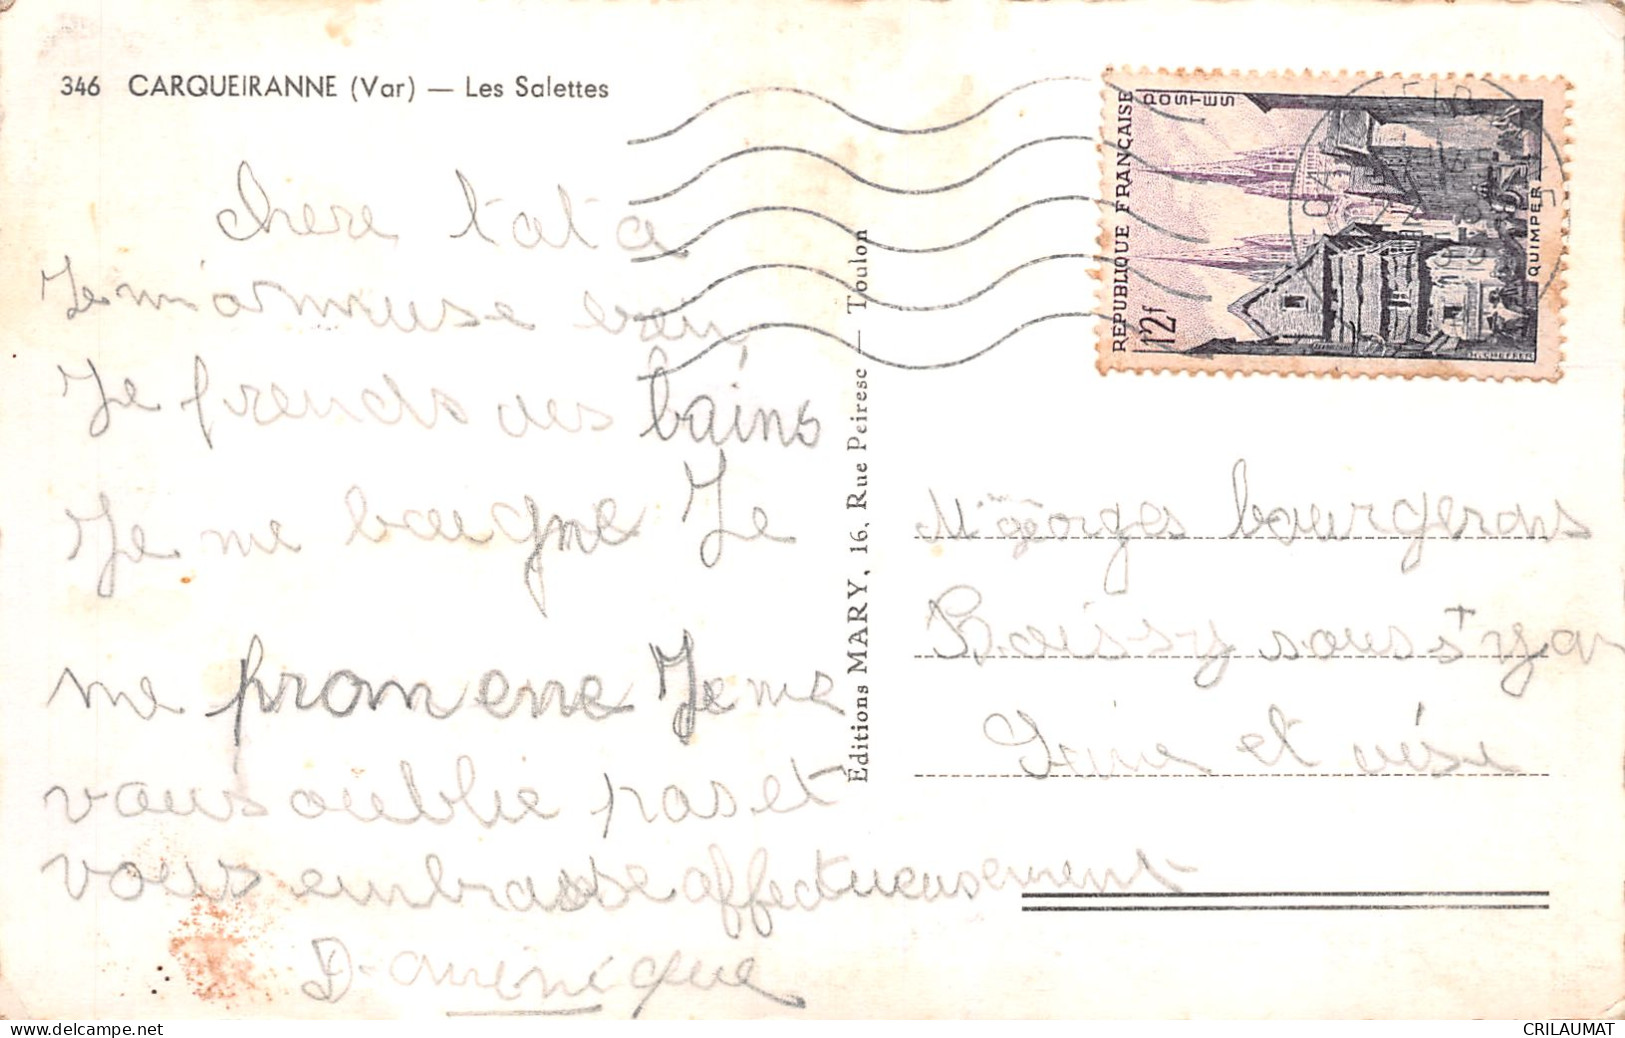 346 CARQUEIRANNE (Var) — Les Salettes
chere tata
Je m'amuse
Je prends des bains
Je me baigne Je
me promene Je me
vous oublie pas et
vous embrasse affectueusement
Dominique
Éditions MARY, 16, Rue Peiresc — Toulon
REPUBLIQUE FRANÇAISE
POSTES
12f
QUIMPER
H.CHEFFER
Georges bourgerons
Boissy sous st yon
Seine et oise
delcampe.net
CRILAUMAT